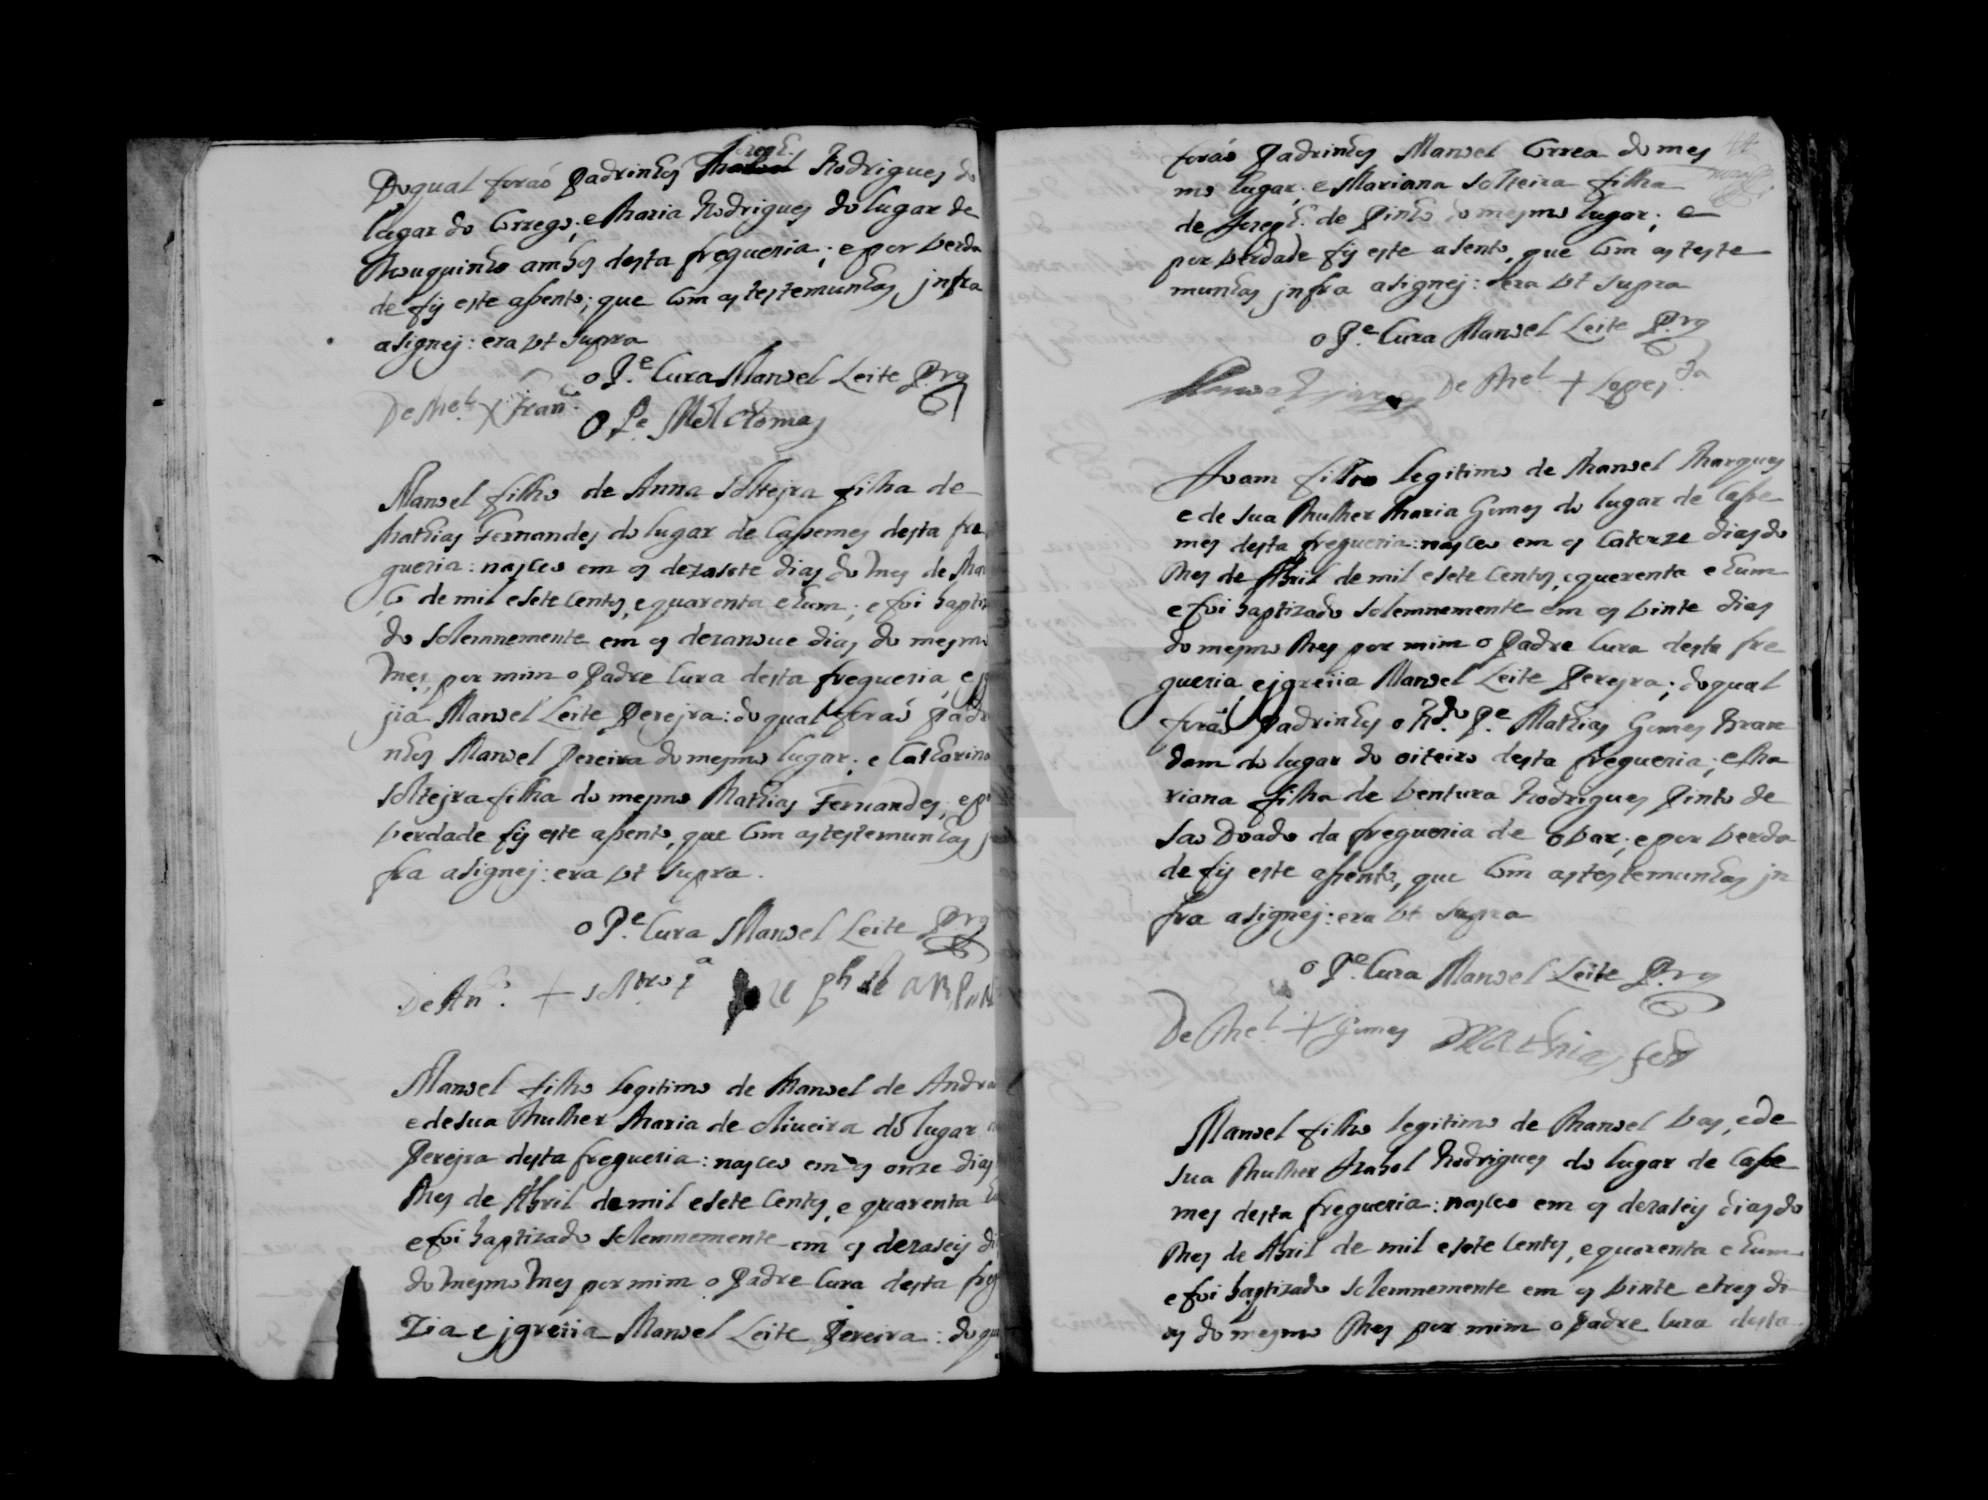 Joseph.
Do qual forão Padrinhos Manoel Rodrigues do
lugar do Corrego; e Maria Rodrigues do lugar de
Mouquinho ambos desta freguesia; e por verda
de fis este assento; que com as testemunhas infra
asignej: era vt supra
o P.e Cura Manoel Leite Prª
De Mel. X Fran.co
O P.e Mel Thomas
Manoel filho de Anna solteira filha de
Mathias Fernandes do lugar de Cassemes desta fre
guesia: nasceo em os dezasete dias do mes de Mar
ço de mil e sete centos, e quarenta e hum; e foi baptiza
do solemnemente em os dezanoue dias do mesmo
mes, por mim o Padre Cura desta freguesia, e jg
jia Manoel Leite Perejra: do qual forão Padri
nhos Manoel Pereira do mesmo lugar; e Catharina
soltejra filha do mesmo Mathias Fernandes; e por
verdade fis este assento, que com as testemunhas jn
fra asignej: era vt supra.
o P.e Cura Manoel Leite Prª
De An.to +
Manoel filho legitimo de Manoel de Andra
e de sua Mulher Maria de oliueira do lugar
Perejra desta freguesia: nasceo em os onze dias
Mes de Abril de mil e sete centos, e quarenta hu
e foi baptizado solemnemente em os dezaseis di
do mesmo mes por mim o Padre Cura desta freg
zia e jgreiia Manoel Leite Pereira: do qua
44
forão Padrinhos Manoel Correa do mes
mo lugar; e Mariana solteira filha
de Joseph de Pinho do mesmo lugar; e
por verdade fis este asento, que com as teste
munhas jnfra asignej: era vt supra
o P.e Cura Manoel Leite Prª
De Mel. + Lopes
Joam filho legitimo de Manoel Marques
e de sua Mulher Maria Gomes do lugar de Casse
mes desta freguesia: nasceo em os Catorze dias do
Mes de Abril de mil e sete centos, e quarenta e hum
e foi baptizado solemnemente em os vinte dias
do mesmo Mes por mim o Padre Cura desta fre
guesia, e jgreiia Manoel Leite Perejra; do qual
forão Padrinhos o R.do P.e Mathias Gomes Bran
dam do lugar do oiteiro desta freguesia; e Ma
riana filha de Ventura Rodrigues Pinto de
Sao Doado da freguesia de ovar; e por verda
de fis este assento, que com as testemunhas jn
fra asignej: era vt supra
o P.e Cura Manoel Leite Prª
De Mel. + Gomes Mathias frz
Manoel filho legitimo de Manoel Vas, e de
sua Mulher Izabel Rodrigues do lugar de Casse
mes desta freguesia: nasceo em os dezaseis dias do
Mes de Abril de mil e sete centos, e quarenta e hum
e foi baptizado solemnemente em os vinte e tres di
as do mesmo Mes por mim o Padre Cura desta